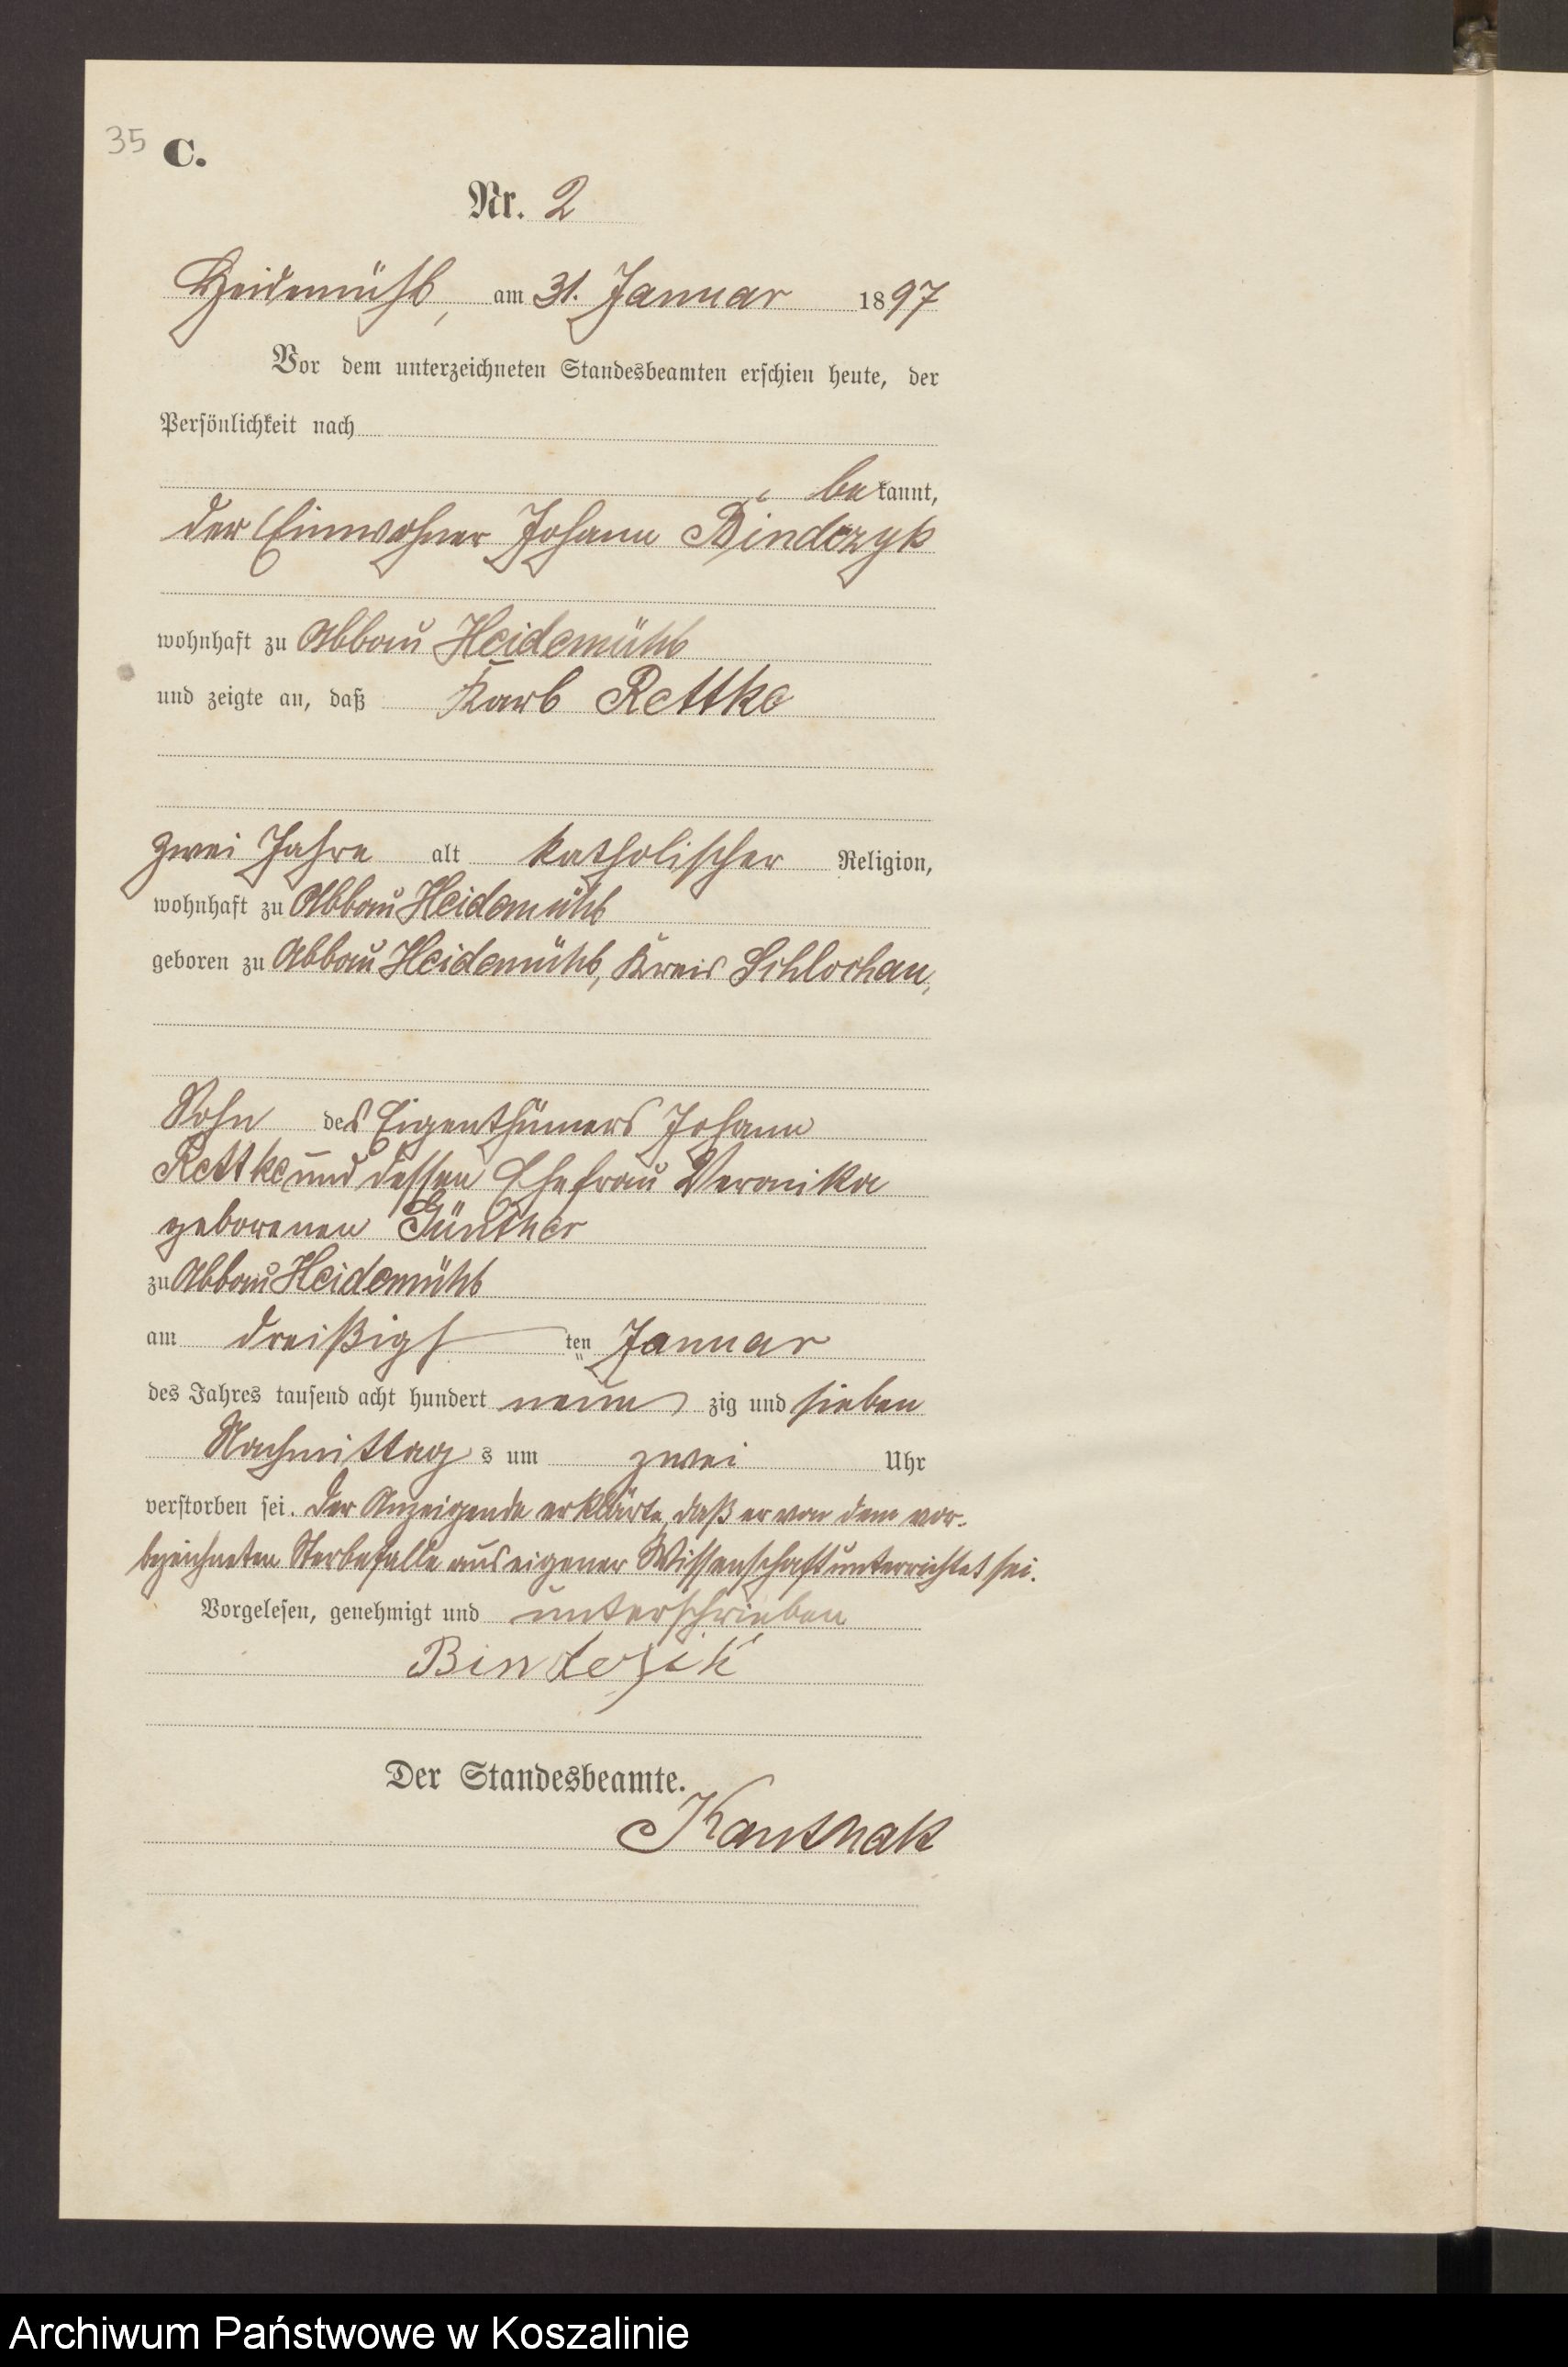 35 C.
Nr. 2
Heidemühl, am 31. Januar 1897
Vor dem unterzeichneten Standesbeamten erschien heute, der
Persönlichkeit nach
bekannt,
der Einwohner Johann Bindczyk
wohnhaft zu Abbau Heidemühl
und zeigte an, daß Karl Rettke
zwei Jahre alt katholischer Religion,
wohnhaft zu Abbau Heidemühl
geboren zu Abbau Heidemühl, Kreis Schlochau,
Sohn des Eigenthümers Johann
Rettke und dessen Ehefrau Veronika
geborenen Günther
zu Abbau Heidemühl
am dreißigsten Januar
des Jahres tausend acht hundert neunzig und sieben
Nachmittags um zwei Uhr
verstorben sei. Der Anzeigende erklärte, daß er von dem vor-
bezeichneten Sterbefalle aus eigener Wissenschaft unterrichtet sei.
Vorgelesen, genehmigt und unterschrieben
Der Standesbeamte.
Archiwum Państwowe w Koszalinie